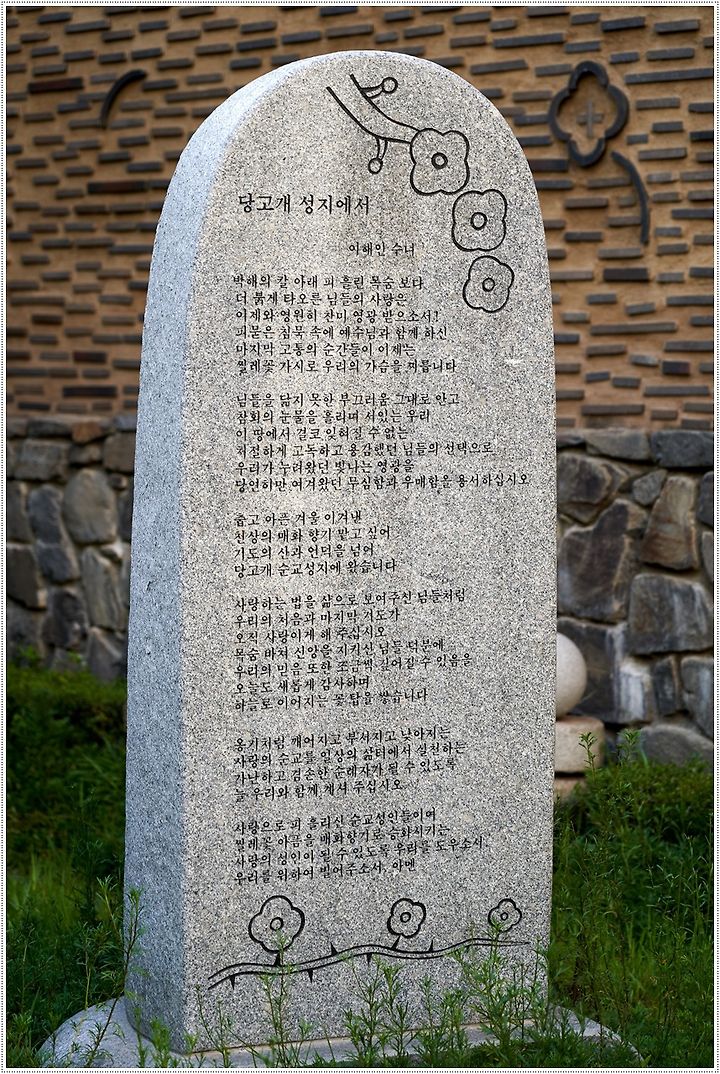 당고개 성지에서
이해인 수녀
박해의 칼 아래 피 흘린 목숨 보다
더 붉게 타오른 님들의 사랑은
이제와 영원히 찬미 영광 받으소서!
피묻은 침묵 속에 예수님과 함께 하신
마지막 고통의 순간들이 이제는
찔레꽃 가시로 우리의 가슴을 찌릅니다
님들을 닮지 못한 부끄러움 그대로 안고
참회의 눈물을 흘리며 서있는 우리
이 땅에서 결코 잊혀질 수 없는
처절하게 고독하고 용감했던 님들의 선택으로
우리가 누려왔던 빛나는 영광을
당연하만 여겨왔던 무심함과 우매함을 용서하십시오
춥고 아픈 겨울 이겨낸
신상의 매화 향기 맡고 싶어
기도의 산과 언덕을 넘어
당고개 순교성지에 왔습니다
사랑하는 법을 삶으로 보여주신 님들처럼
우리의 처음과 마지막 저도가
오직 사랑이게 해 주십시오
목숨 바쳐 신앙을 지키신 님들 덕분에
우리의 믿음 또한 조금씩 깊어질 수 있음을
오늘도 새롭게 감사하며
하늘로 이어지는 꽃탑을 쌓습니다
옹기처럼 깨어지고 부서지고 낮아지는
사랑의 순교를 일상의 삶터에서 실천하는
가난하고 겸손한 순례자가 될 수 있도록
늘 우리와 함께 계셔 주십시오
사랑으로 피 흘리신 순교성인들이여
찔레꽃 아픔을 매화향기로 승화시키는
사랑의 성인이 될 수 있도록 우리를 도우소서
우리를 위하여 빌어주소서. 아멘